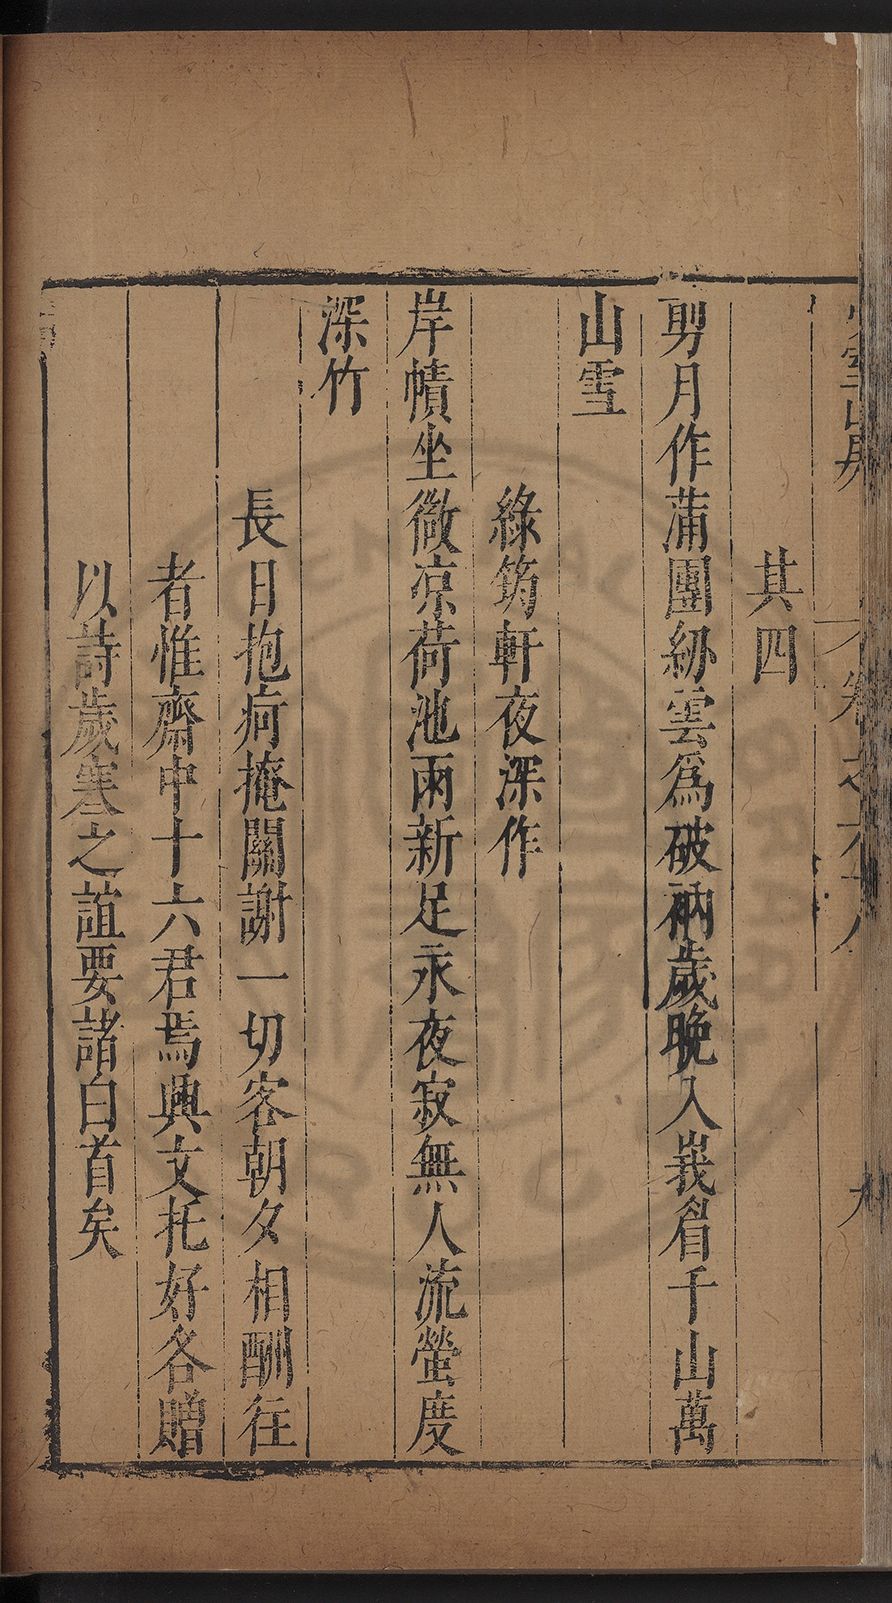 少室山房 卷之六十八 九
其四
剪月作蒲團紉雲爲破衲歲晚入峩睂千山萬
山雪
綠筠軒夜深作
岸幘坐微凉荷池雨新足永夜寂無人流螢度
深竹
長日抱疴掩關謝一切客朝夕相酬往
者惟齋中十六君焉興文托好各贈
以詩歲寒之誼要諸白首矣